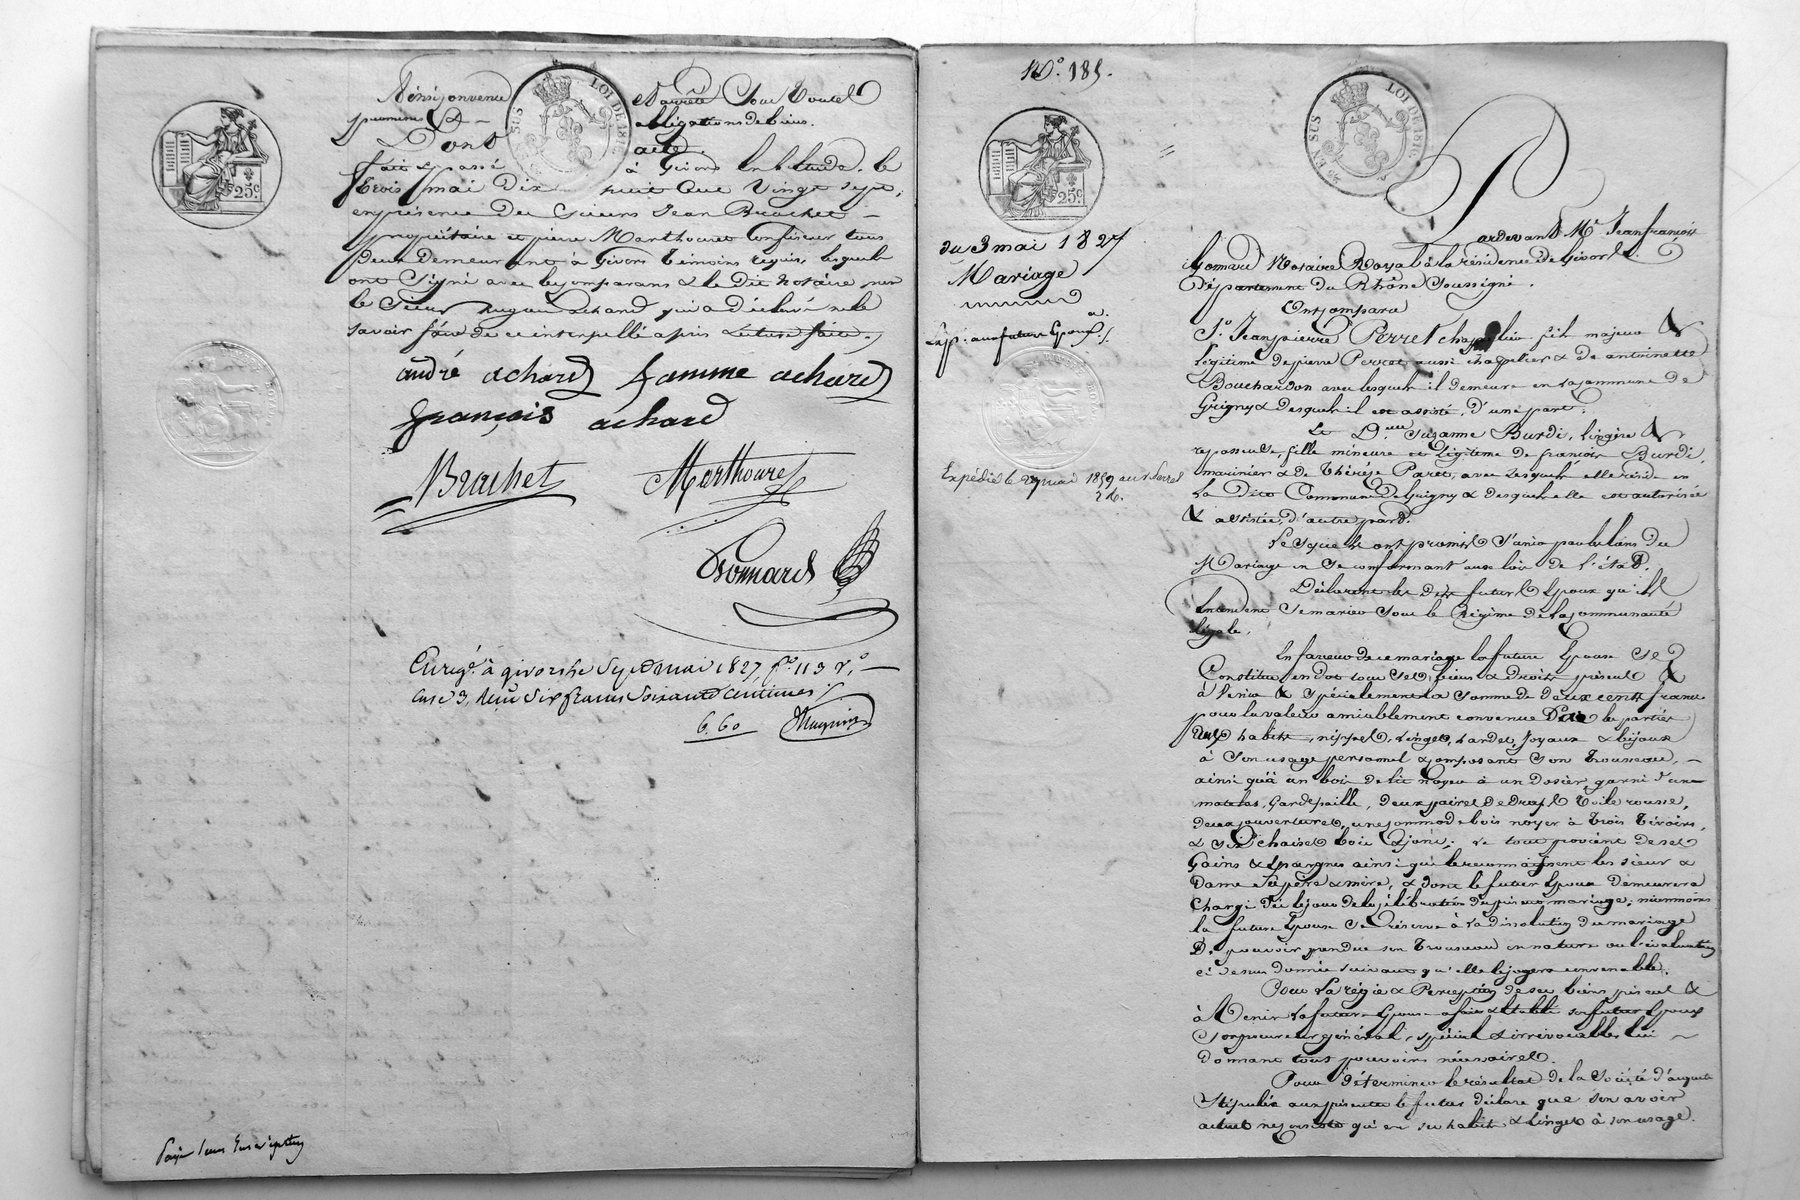 Ainsi convenu
promis &
Dont
fait et passé
Ntaurêté Sous Toutes
obligations de biens.
acte
à Givors en l'étude, le
trois mai dix huit cent vingt sept,
en présence des Sieurs Jean Brachet
propriétaire et pierre Marthouret Confiseur tous
deux demeurant à Givors Témoins requis, lesquels
ont Signé avec les comparans & le dit notaire, non
le Sieur achard qui a déclaré ne le
savoir faire de ce interpellé après Lecture faite.
andré achard femme achard
françois achard
Brachet Marthouret
Gomard
Enregé. à givors le Sept mai 1827, fo. 113 Vo.
case 3, Reçu Six francs Soixante centimes
6. 60
LOI DE 1816
EN SUS
25c.
No. 185.
25c.
LOI DE 1816
EN SUS
du 3 mai 1827
Mariage
Exp. aux futurs Epoux
Expédié le 29 mai 1859 aux Perret
Pardevant Me. Jean françois
Gomard Notaire Royal à la résidence de Givors
Département du Rhône Soussigné.
Ont comparu
So. Jean pierre Perret chapelier fils majeur &
légitime de pierre Perret aussi chapelier & de antoinette
Bouchardon avec lesquels il demeure en la commune de
Grigny & desquels il est assisté, d'une part.
Et Dlle Suzanne Burdi, lingère &
repasseuse, fille mineure et légitime de françois Burdi,
marinier & de Thérèse Paret, avec lesquels elle réside en
la Dite Commune de Grigny & desquels elle est autorisée
& assistée, d'autre part.
Lesquels ont promis S'unir par les liens du
Mariage en Se conformant aux lois de l'état.
Déclarent les dits futurs Epoux qu'ils
Entendent Se marier Sous le Régime de la communauté
légale.
En faveur de ce mariage la future Epouse Se
Constitue en dot tous Ses biens & Droits présents &
à Venir & Spécialement la Somme de deux cents francs
pour la valeur amiablement convenue Entre les parties
des habits, nippes, Linges, hardes, Joyaux & bijoux
à Son usage personnel & composant Son Trousseau,
ainsi qu'à un bois de lit noyer à un Dosier garni d'un
matelas, Gardepaille, deux paires de Draps Toile rousse,
deux couvertures, une commode bois noyer à Trois Tiroirs,
& Six chaises bois & jonc. Le tout provient de ses
Gains & Epargnes ainsi que le reconnaissent les sieur &
Dame ses père & mère, & dont le futur Epoux demeurera
Chargé dès le jour de la célébration du présent mariage; néanmoins
la future Epouse Se Réserve à la dissolution du mariage
De pouvoir prendre son Trousseau en nature ou l'évaluation
ci dessus donnée suivant qu'elle le jugera convenable.
Pour la régie & Perception de ses biens présents &
à Venir la future Epouse a fait & établi son futur Epoux
Son procureur général, spécial & irrévocable, lui
donnant tous pouvoirs nécessaires.
Pour déterminer le résultat de la Société d'acquets
Stipulée aux présentes le futur déclare que son avoir
actuel ne consiste qu'en ses habits & linges à son usage.